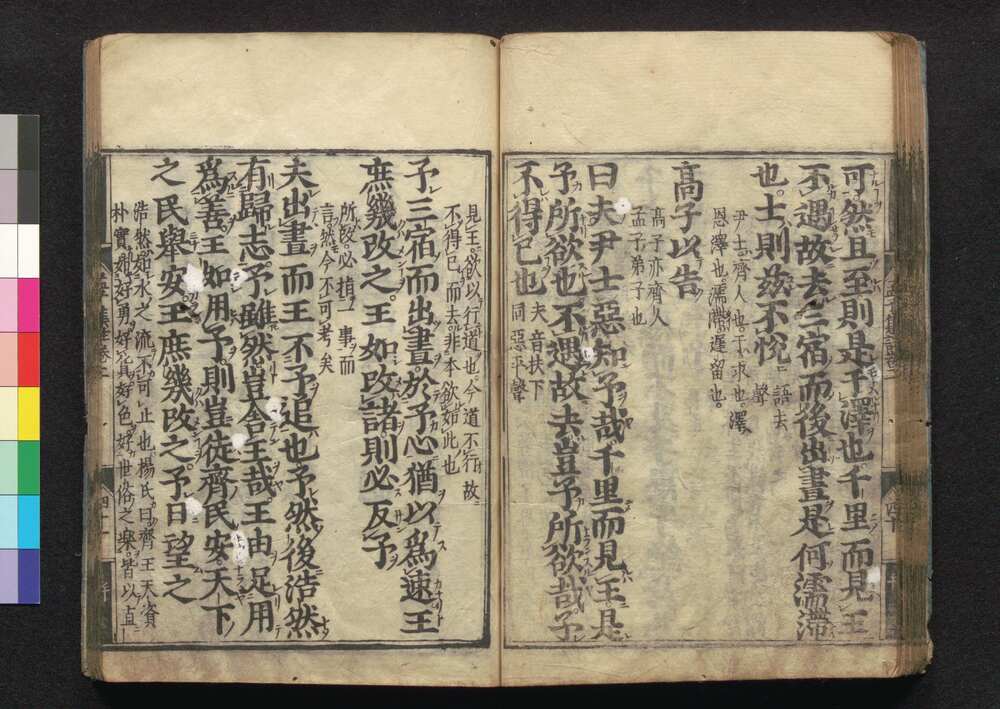 可然且至則是干澤也千里而見王
不遇故去三宿而後出晝是何濡滯
也。士則茲不悅
語去
聲
尹士。齊人也。干求也。澤
恩澤也。濡滯。遲留也。
高子以告
高子亦齊人
孟子弟子也
曰夫尹士惡知予哉千里而見王。是
予所欲也不遇故去豈予所欲哉予
不得已也
夫音扶下
同惡平聲
見王。欲以行道也今道不行故
不得已而去。非本欲如此也
予三宿而出晝。於予心猶以爲速王
庶幾改之。王如改諸則必反予
所改。必指一事而
言。然今不可考矣
夫出晝而王不予追也予然後浩然
有歸志。予雖然豈舍王哉。王由足用
爲善。王如用予。則豈徒齊民安。天下
之民舉安王庶幾改之。予日望之
浩然。如水之流不可止也楊氏。曰。齊王天資
朴實如好勇好貨好色。好世俗之樂。皆以直